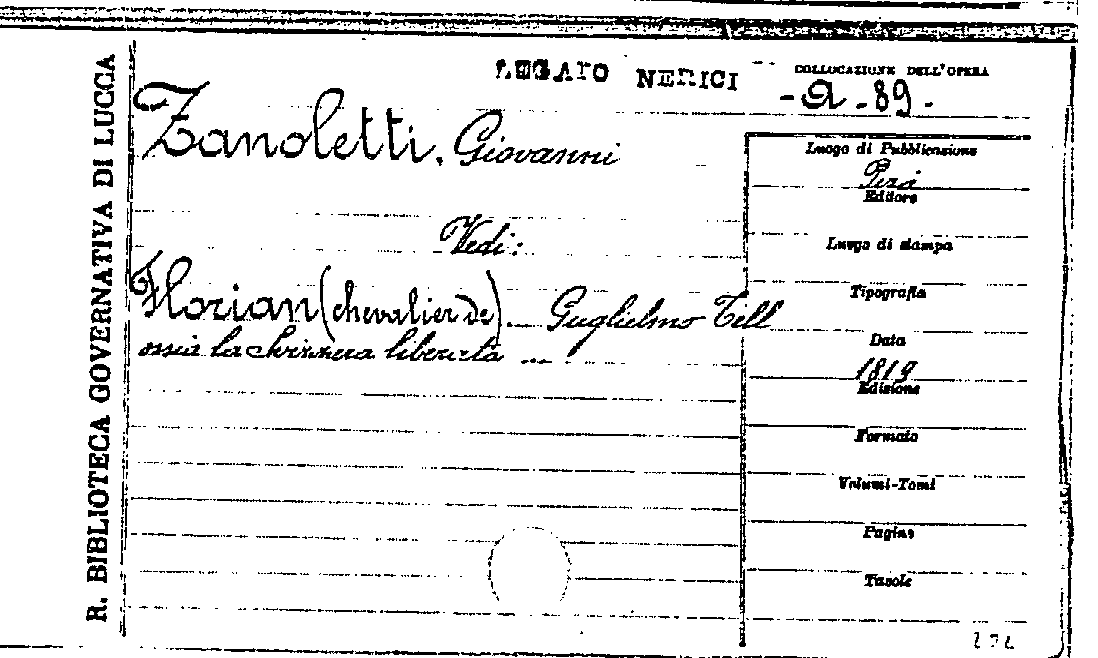 R. BIBLIOTECA GOVERNATIVA DI LUCCA
LEGATO NERICI
COLLOCAZIONE DELL'OPERA
- A - 89 -
Zanoletti, Giovanni
Vedi:
Florian (chevalier de). Guglielmo Tell
ossia la svizzera liberata ...
Luogo di Pubblicazione
Editore
Luogo di stampa
Tipografia
Data
1819
Edizione
Formato
Volumi-Tomi
Pagine
Tavole